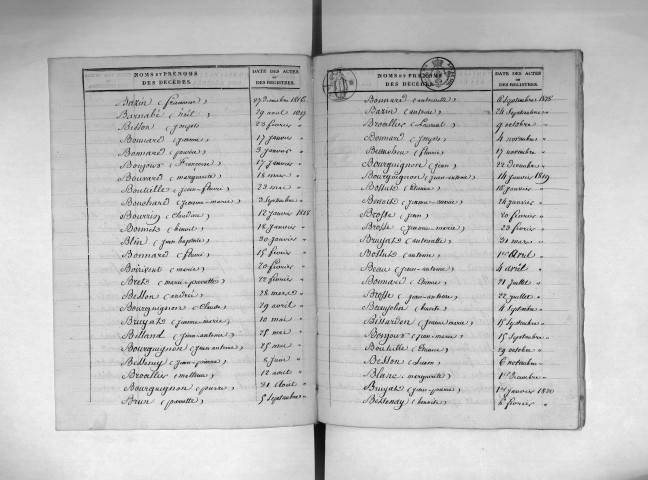 NOMS ET PRÉNOMS
DES DÉCÉDÉS.
DATE DES ACTES
OU
DES REGISTRES.
Bazin (
Barnabé (noël) 29 août
Besson (joseph) 23 février "
Bonnard (jeanne) 17 janvier "
Bonnard (pierre) 3 janvier "
Bonjour (Françoise) 17 janvier "
Bouvard (marguerite) 18 mars "
Bouteille (jean-fleuri) 23 mai "
Bouchard (jeanne-marie) 3 Septembre "
Bourrin (claudine) 12 janvier 1818
Bonnet (benoit) 18 janvier "
Blin (jean baptiste) 30 janvier "
Bonnard (fleuri) 15 février "
Boirivent (marie) 20 février "
Bret (marie-pierrette) 22 février "
Besson (andré) 28 mars "
Bourguignon (Claude) 29 avril "
Bruyat (jeanne-marie) 10 mai "
Billand (jean-antoine) 25 mai "
Bourguignon (jean antoine) 25 mai "
Bessenay (jean-pierre) 6 juin "
Broallier 12 août "
Bourguignon (pierre) 31 août "
Brun (pierrette) 5 Septembre "
NOMS ET PRÉNOMS
DES DÉCÉDÉS.
DATE DES ACTES
OU
DES REGISTRES.
Bonnard (antoinette) 6 Septembre 1818
Bazin (antoine) 24 Septembre "
Broallier (Laurent) 9 octobre "
Bonnard (joseph) 4 novembre "
(fleurie) 17 novembre "
Bourguignon (jean) 22 décembre "
Bourguignon (jean-antoine) 14 janvier 1819
16 janvier "
Benoit (jeanne-marie) 26 janvier "
Brosse (jean) 20 février "
Brosse (jeanne-marie) 23 février "
Bruyat (antoinette) 31 mars "
(antoine) 1er Avril "
Beau (jean-antoine) 4 avril "
Bonnard (Etienne) 21 juillet "
Brosse (jean-antoine) 22 juillet "
Beaujolin (benoit) 4 Septembre "
Bissardon (jeanne marie) 15 Septembre "
Bonjour (jean-marie) 15 Septembre "
Bouteille (Etienne) 29 octobre "
Besson 6 novembre "
Blanc. marguerite) 1er Décembre "
Bruyat (jean-pierre) 1er janvier 1820
Bessenay (benoite) 4 février "